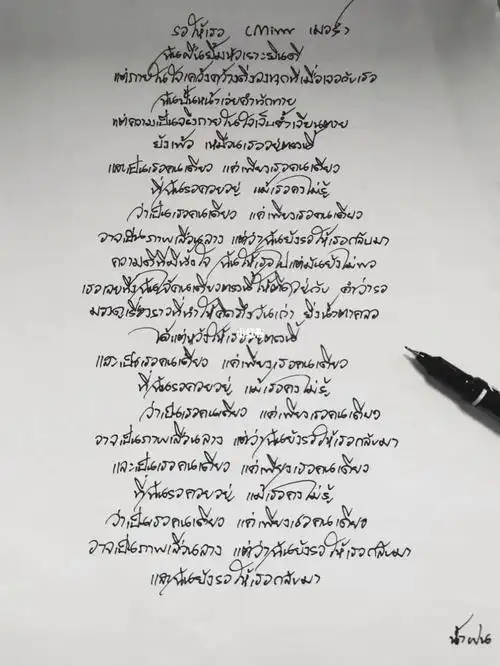 รอให้เธอ (Mirrr เมอร์)
ฉันฝืนยิ้มหัวเราะยินดี
แต่ภายในใจเคว้งคว้างดิ่งลงทุกทีเมื่อเจอกับเธอ
ฉันปั้นหน้าเอ่ยคำทักทาย
แต่ความเป็นจริงภายในใจเจ็บช้ำเจียนตาย
ยังเพ้อ เหมือนเธออยู่ตรงนี้
และเป็นเธอคนเดียว แค่เพียงเธอคนเดียว
ที่ฉันรอคอยอยู่ แม้เธอคงไม่รู้
ว่าเป็นเธอคนเดียว แค่เพียงเธอคนเดียว
อาจเป็นภาพเลือนลาง แต่ว่าฉันยังรอให้เธอกลับมา
ความรักที่มีทั้งใจ ฉันให้เธอไปแต่มันยังไม่พอ
เธอเลยทิ้งฉันไว้คนเดียวตรงนี้ให้ติดอยู่กับ คำว่ารอ
มองดูเรื่องราวที่ทำให้คิดถึงวันเก่า ยิ่งน้ำตาคลอ
ได้แต่หวังให้เธออยู่ตรงนี้
และเป็นเธอคนเดียว แค่เพียงเธอคนเดียว
ที่ฉันรอคอยอยู่ แม้เธอคงไม่รู้
ว่าเป็นเธอคนเดียว แค่เพียงเธอคนเดียว
อาจเป็นภาพเลือนลาง แต่ว่าฉันยังรอให้เธอกลับมา
และเป็นเธอคนเดียว แค่เพียงเธอคนเดียว
ที่ฉันรอคอยอยู่ แม้เธอคงไม่รู้
ว่าเป็นเธอคนเดียว แค่เพียงเธอคนเดียว
อาจเป็นภาพเลือนลาง แต่ว่าฉันยังรอให้เธอกลับมา
และฉันยังรอให้เธอกลับมา
น้ำฝน